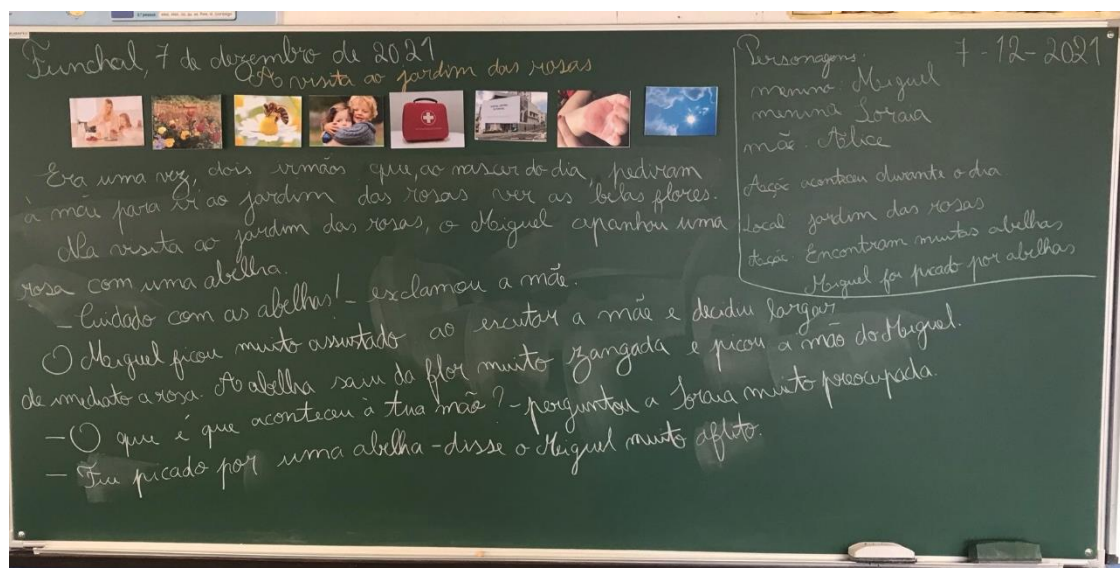 Funchal, 7 de dezembro de 2021
A visita ao jardim das rosas
Era uma vez, dois irmãos que, ao nascer do dia, pediram
à mãe para ir ao jardim das rosas ver as belas flores.
Na visita ao jardim das rosas, o Miguel apanhou uma
rosa com uma abelha.
– Cuidado com as abelhas! – exclamou a mãe.
O Miguel ficou muito assustado ao escutar a mãe e decidiu largar
de imediato a rosa. A abelha saiu da flor muito zangada e picou a mão do Miguel.
– O que é que aconteceu à tua mão? – perguntou a Soraia muito preocupada.
– Fui picado por uma abelha – disse o Miguel muito aflito.
7-12-2021
Personagens:
menino: Miguel
menina Soraia
mãe: Alice
Acção aconteceu durante o dia
Local: jardim das rosas
Acção: Encontram muitas abelhas
Miguel foi picado por abelhas